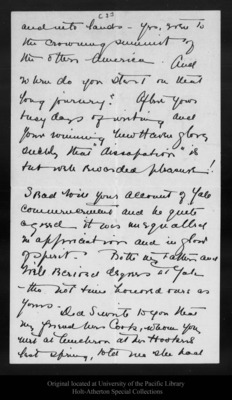 [3]
and into lands – yes, even to
the crowning summit of
the other America. And
when do you start on that
long journey? After your
busy days of working and
your winning New Haven glory
surely that "dissapation" is
but well rewarded pleasure!
I read Will your account of Yale
commencement and he quite
agreed it was unequalled
in appreciation and in glow
of spirit. Both my Father and
Will received degrees at Yale
– the not time honored ones as
yours. Did I write to you that
my friend Mrs Cook, whom you
met at luncheon at Mr Hooker's
last spring, told me she had
Original located at University of the Pacific Library
Holt-Atherton Special Collections